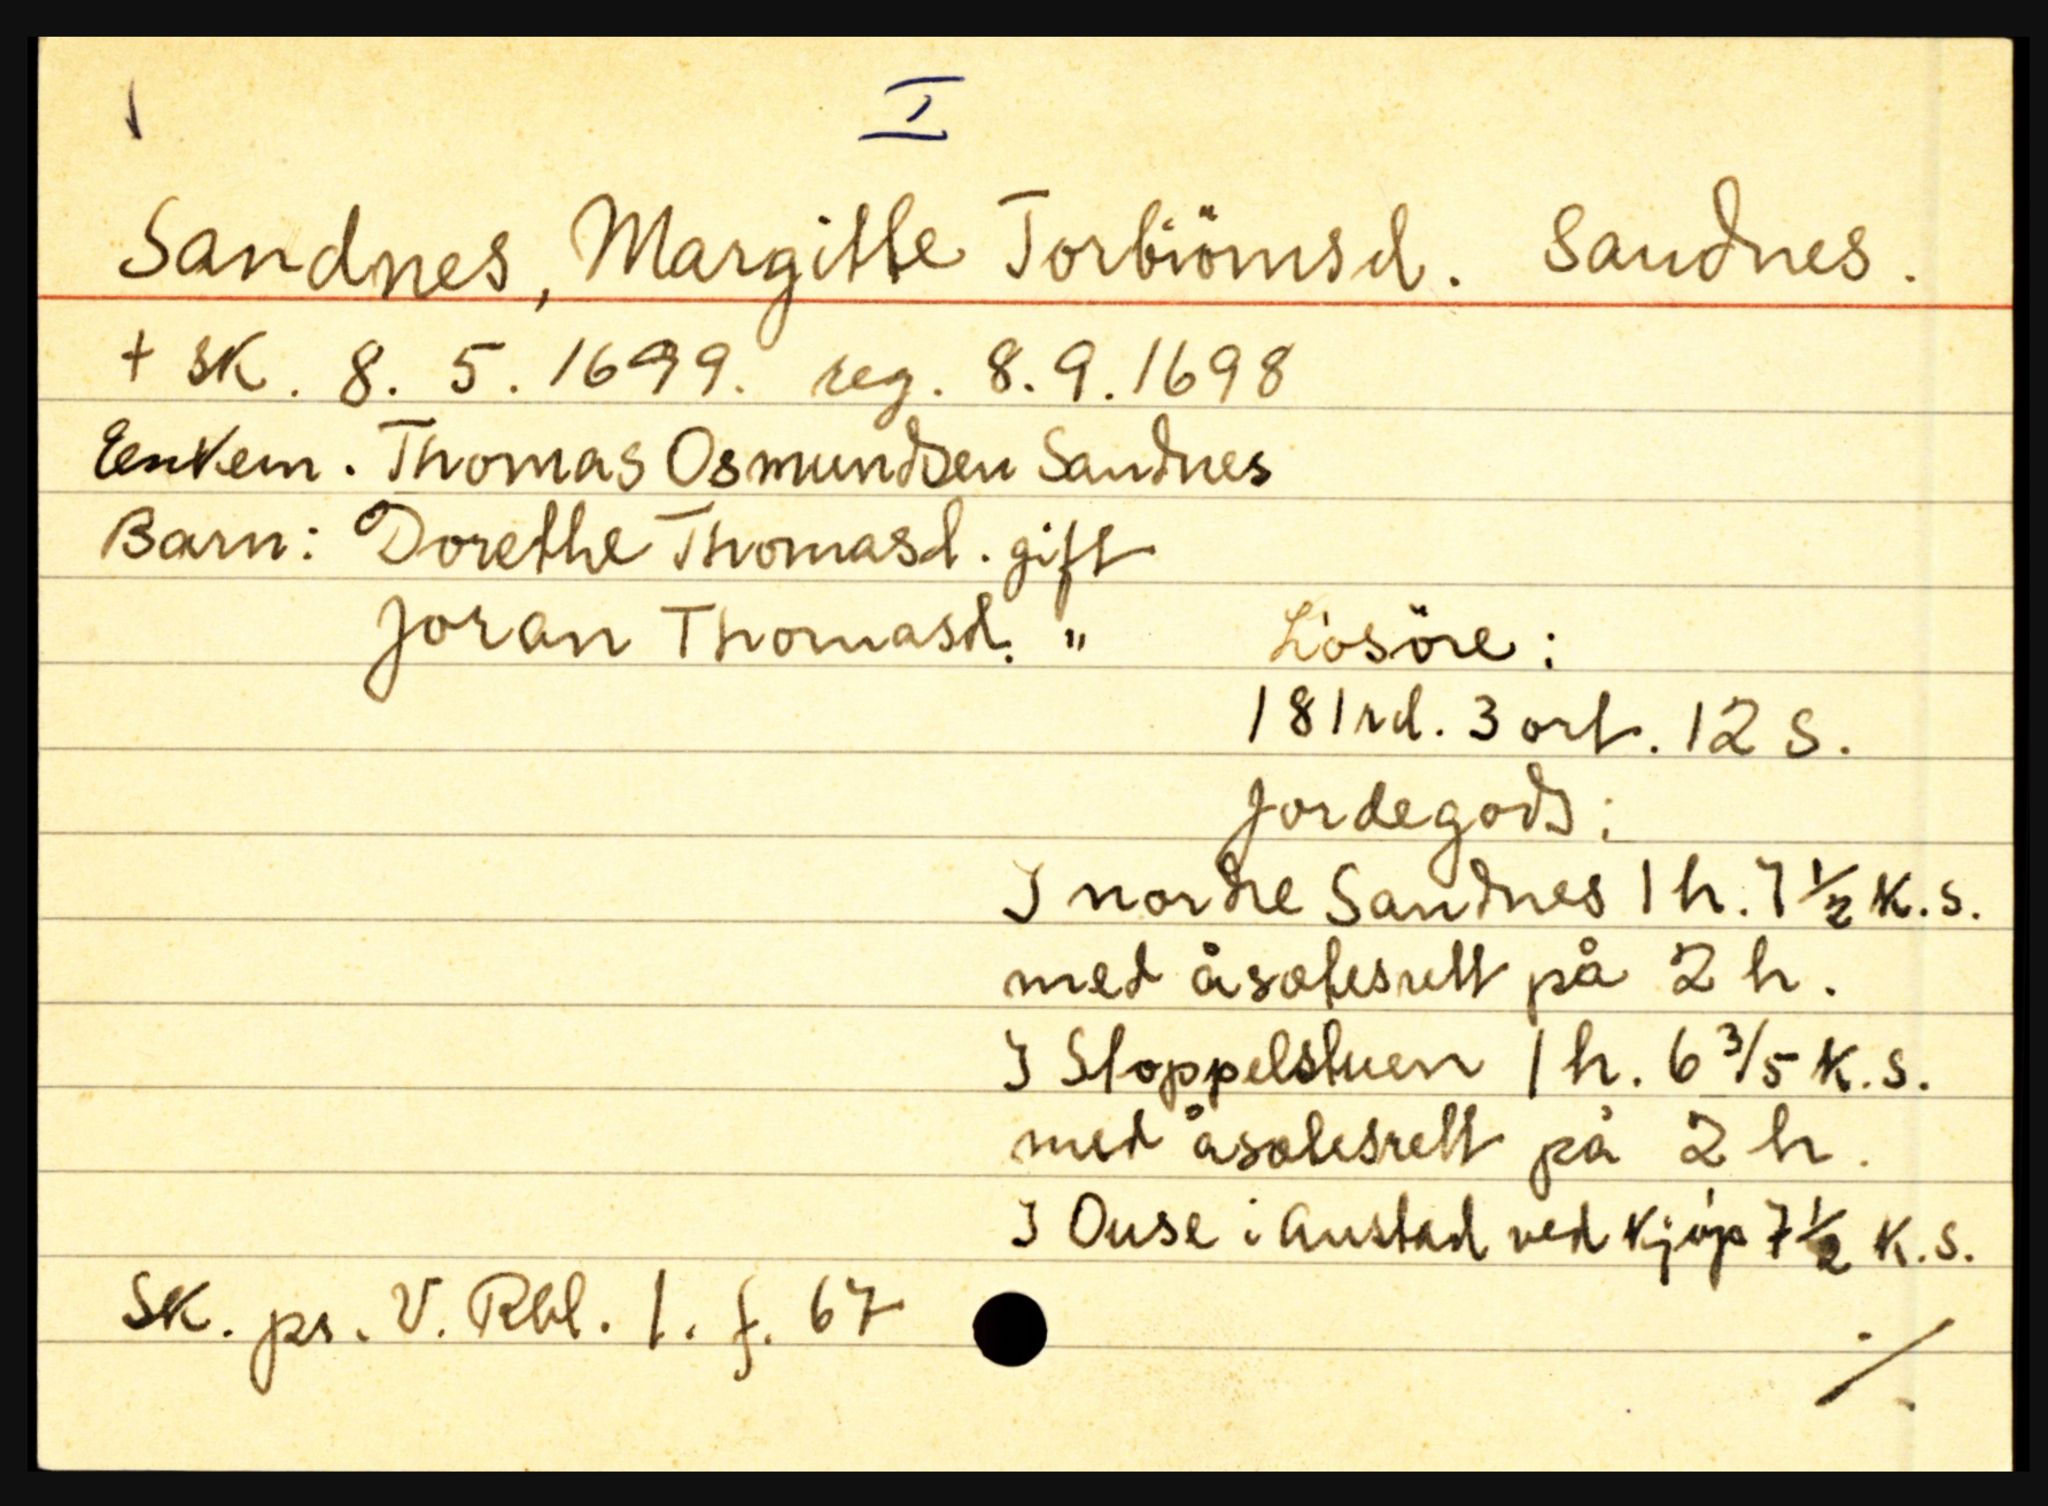 I
Sandnes, Margitte Torbiörnsd. Sandnes.
+ sk. 8. 5. 1699. reg. 8.9.1698
Enkem. Thomas Osmundsen Sandnes
Barn: Dorethe Thomasd. gift
Joran Thomasd. "
Lösöre:
181 rd. 3 ort. 12 s.
Jordegods:
I nordre Sandnes 1 h. 7 1/2 k.s.
med åsætesrett på 2 h.
I Stoppelstuen 1 h. 6 3/5 k.s.
med åsætesrett på 2 h.
I Ouse i Austad ved kjöp 7 1/2 k.s.
Sk. pr. V. Rbl. 1. f. 67
./.